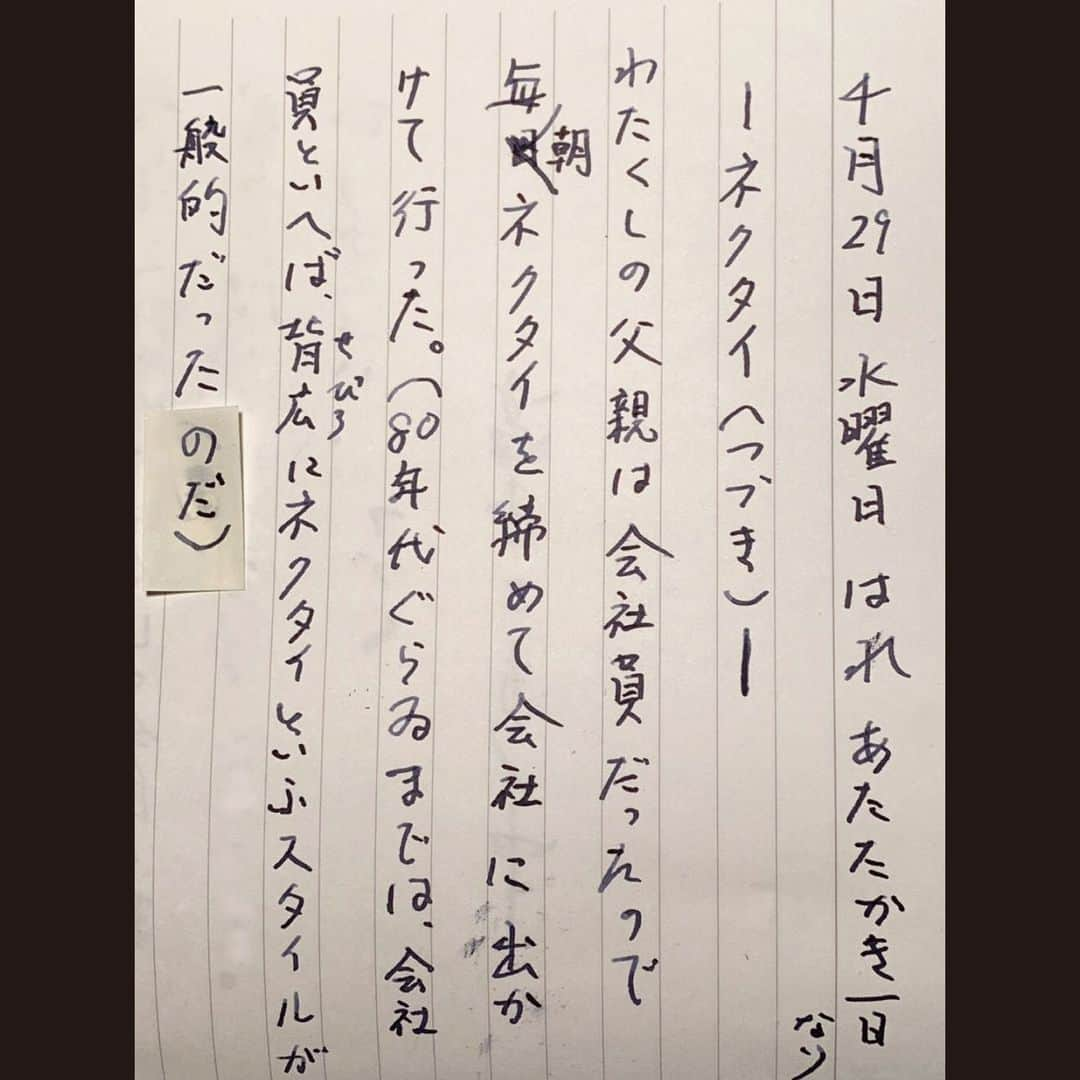 4月29日 水曜日 はれ あたたかき一日
なり
ーネクタイ(つづき)ー
わたくしの父親は会社員だったので
毎朝ネクタイを締めて会社に出か
けて行った。(80年代ぐらゐまでは、会社
員といへば、背広にネクタイといふスタイルが
せびろ
一般的だったのだ)